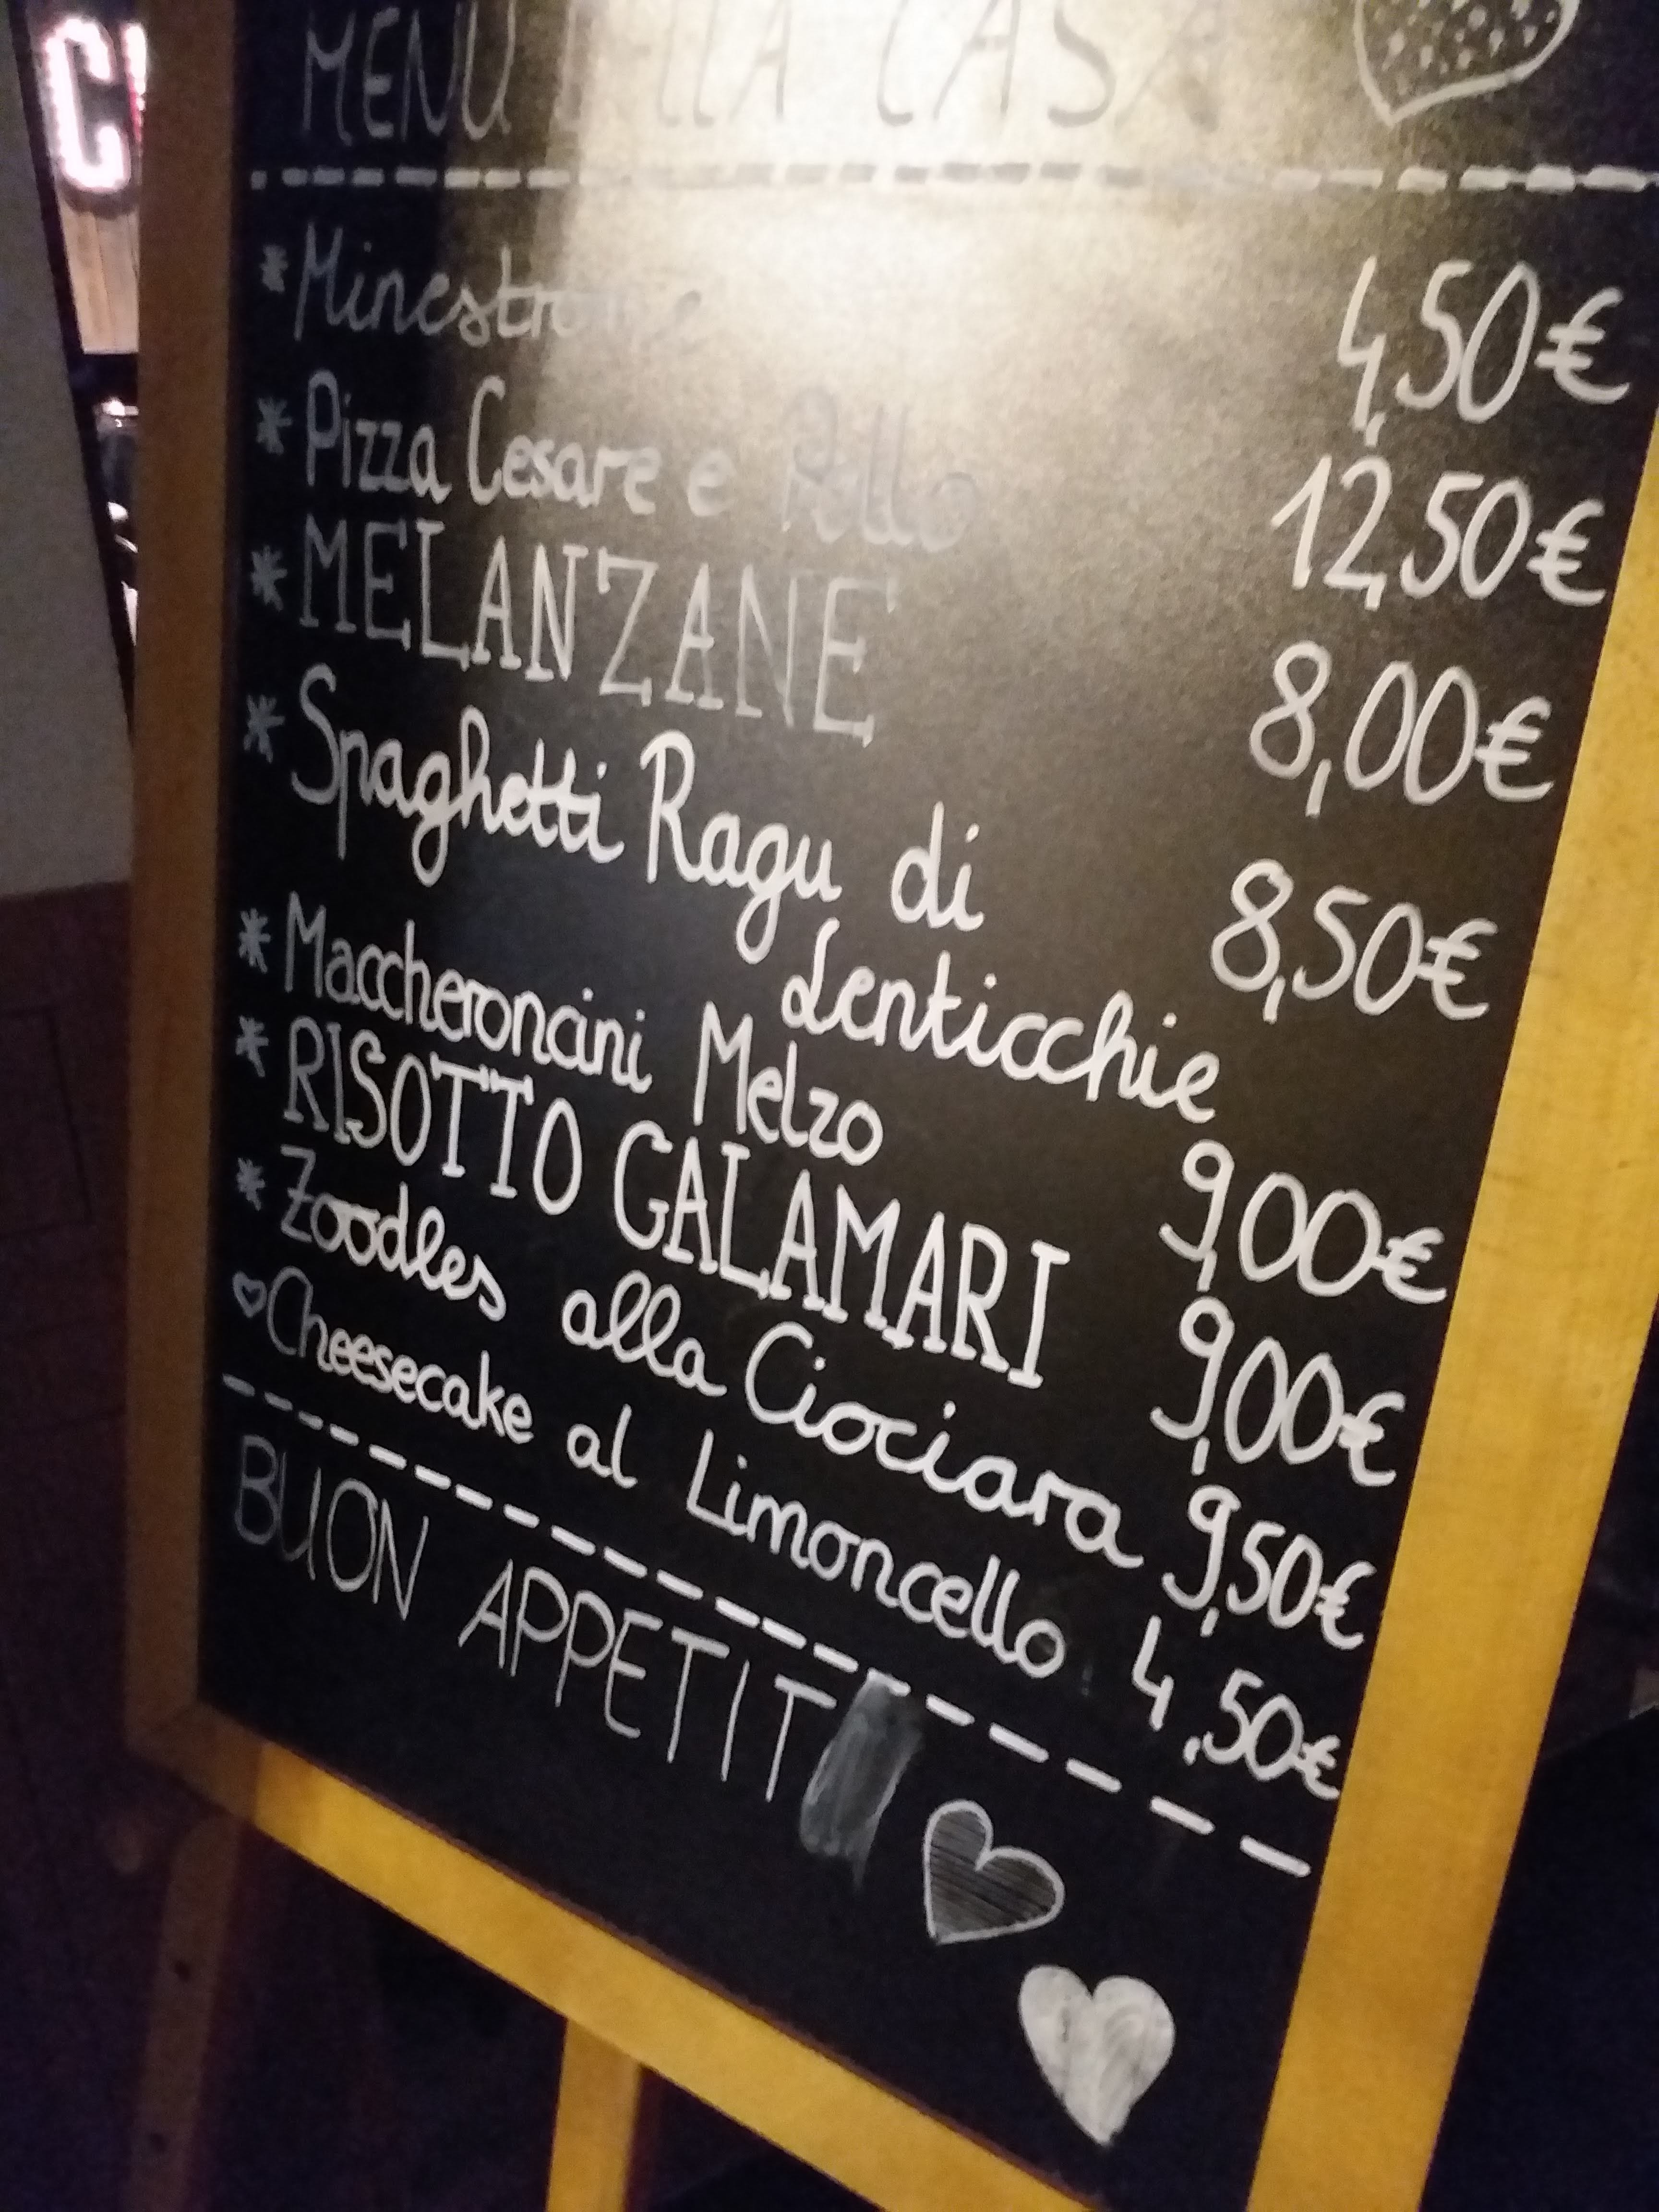 MENU DELLA CASA
*Minestrone 4,50€
*Pizza Cesare e Pollo 12,50€
*MELANZANE 8,00€
*Spaghetti Ragu di 8,50€
Lenticchie
*Maccheroncini Melzo 9,00€
*RISOTTO CALAMARI 9,00€
*Zoodles alla Ciociara 9,50€
♡Cheesecake al Limoncello 4,50€
BUON APPETIT